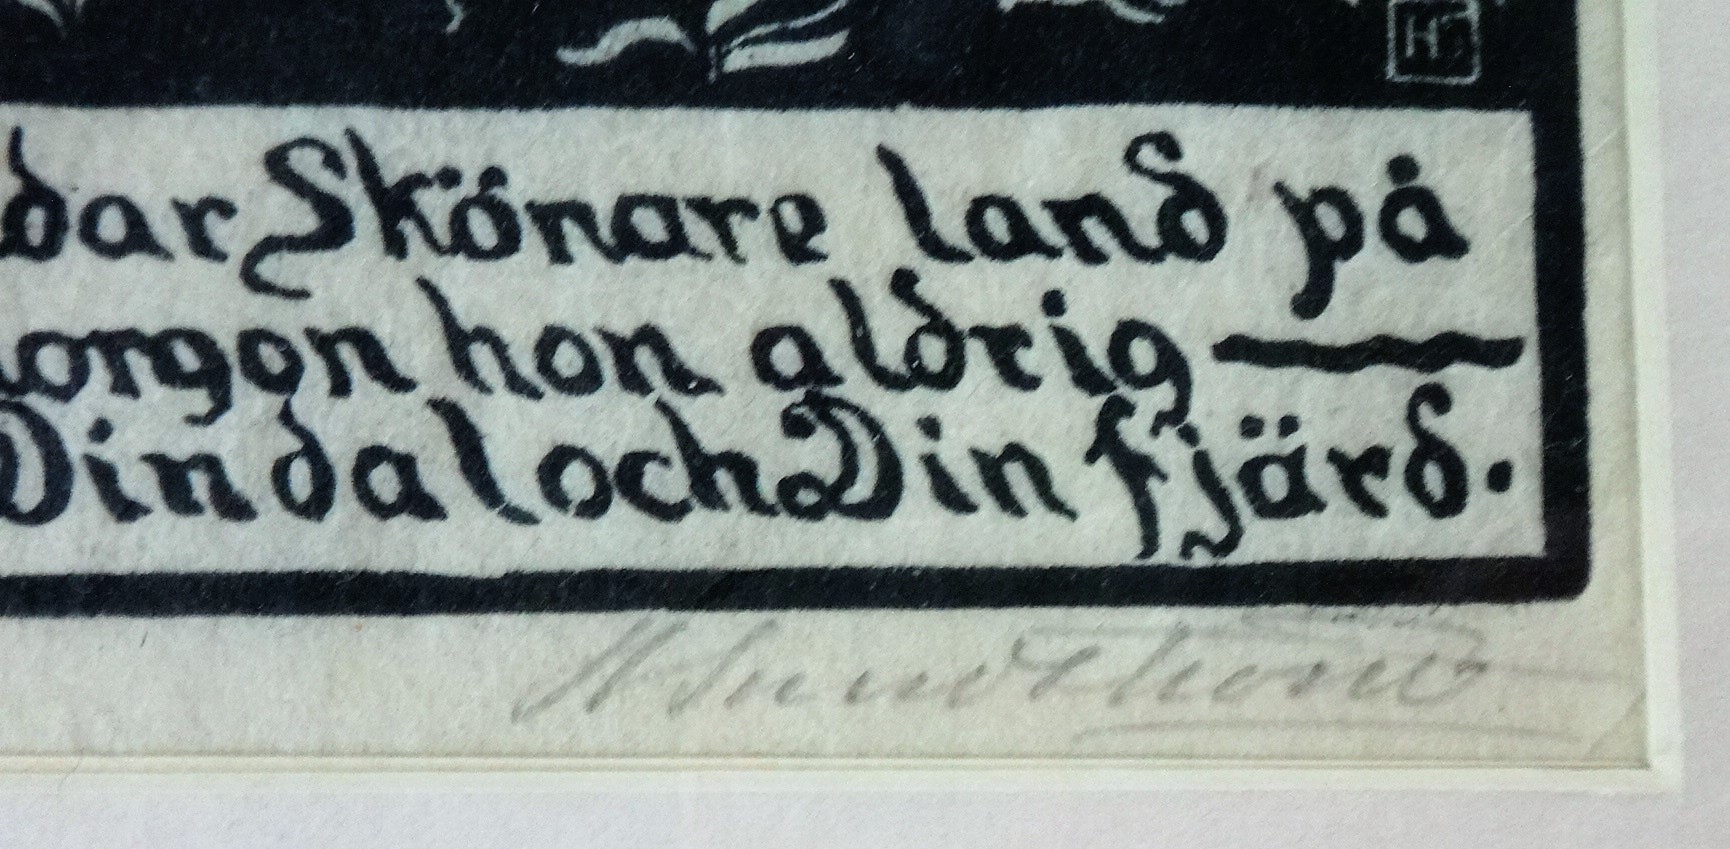 HS
dar Skönare land på
orgon hon aldrig —
Din dal och Din fjärd.